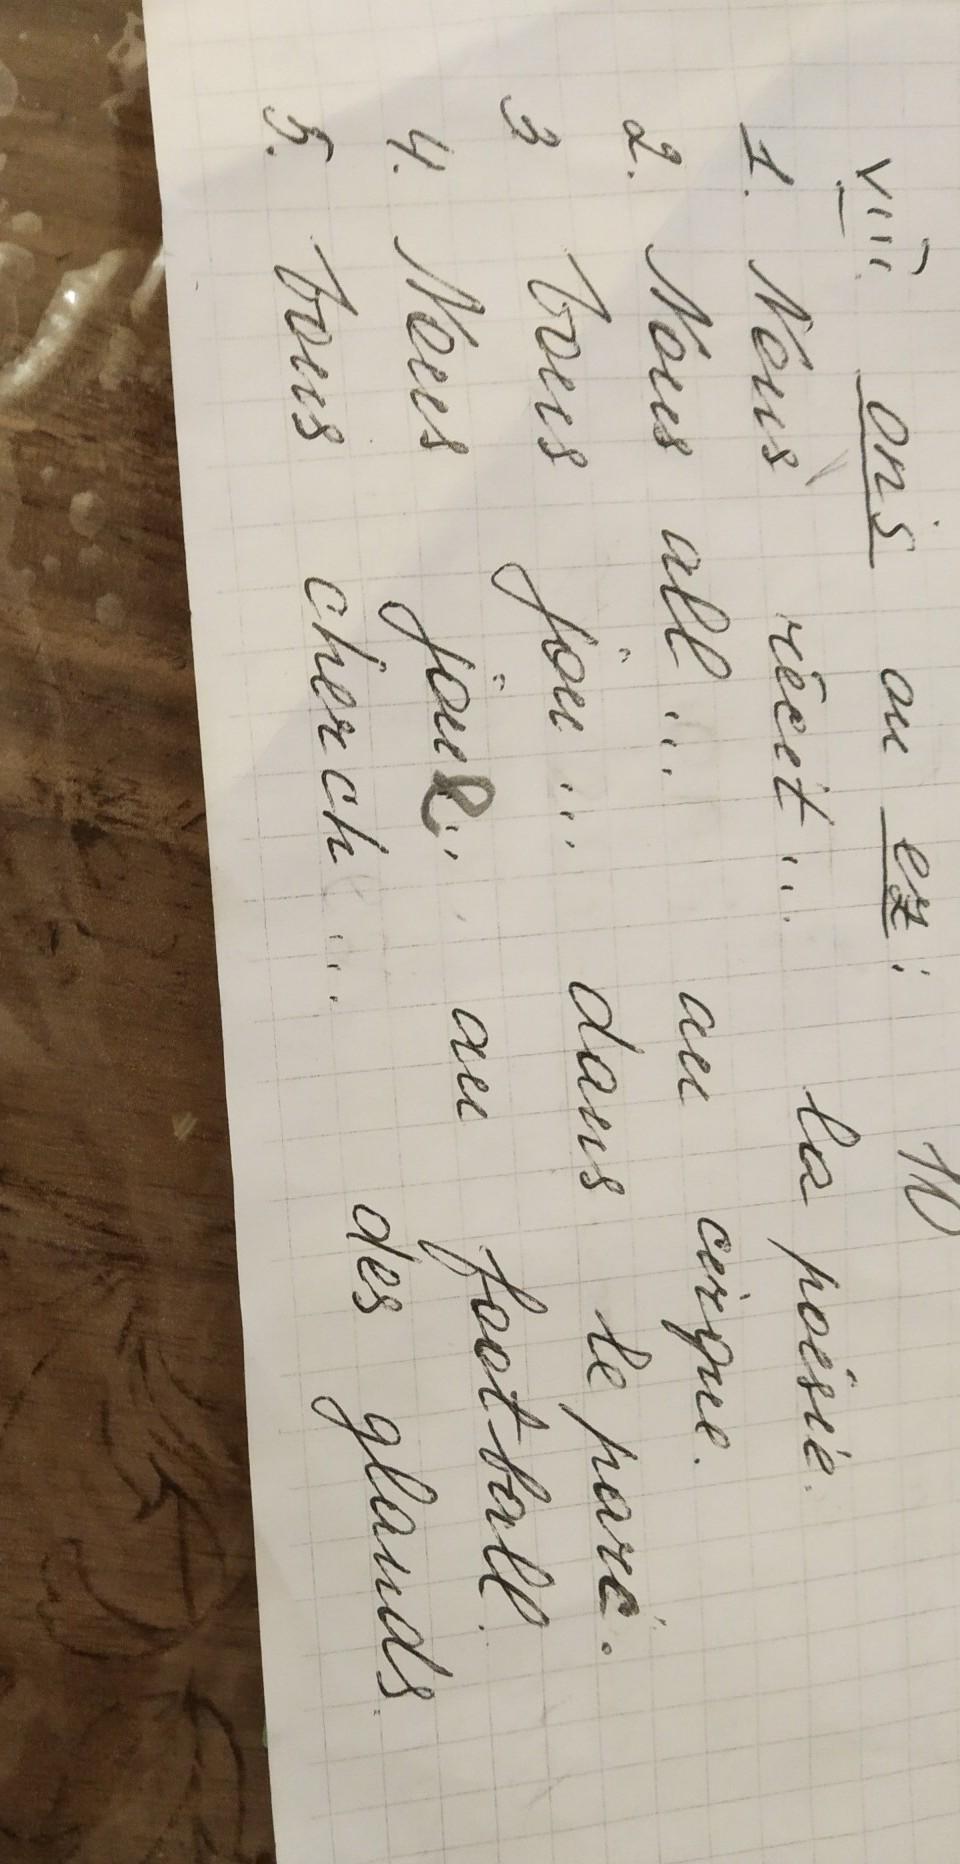 VIII ons ou ez: 10
1. Nous récit... la poésie.
2. Nous all... au cirque.
3 Vous jou... dans le parc.
4. Nous jou... au football.
5. Vous cherch... des glands.